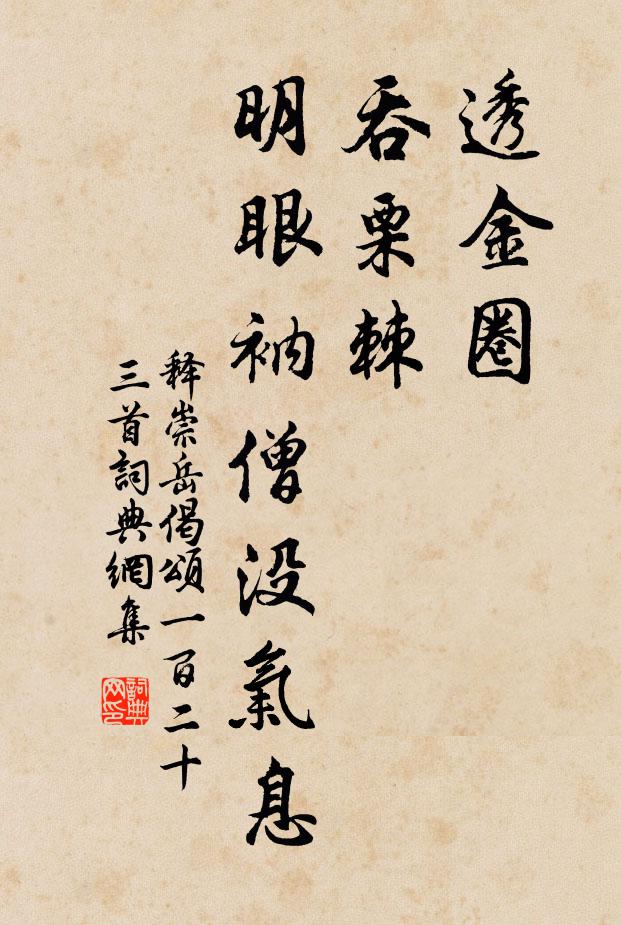 透金圈
吞栗棘
明眼衲僧沒氣息
释崇岳偈頌一百二十
三首詞典網集
詞典网印